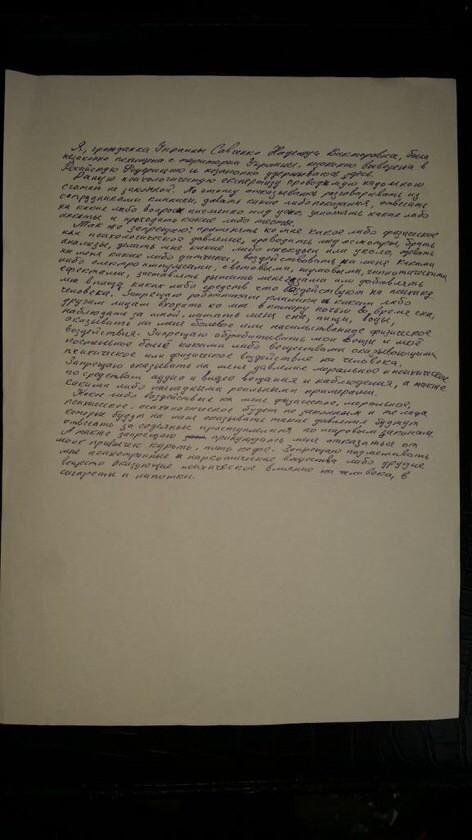 Я, гражданка Украины Савченко Надежда Викторовна, была
незаконно похищена с территории Украины, незаконно вывезена в
Российскую Федерацию и незаконно удерживаюсь здесь.
Данную психологическую экспертизу проводимую надо мною
считаю не законной. По этому отказываюсь разговаривать из
сотрудниками клиники, давать какие либо показания, отвечать
на какие либо вопросы письменно или устно, заполнять какие либо
анкеты и проходить какие либо тесты.
Так же запрещаю: применять ко мне какое либо физическое
как психологическое давление, проводить мед. осмотры, брать
анализы, делать мне какие либо инекции или укола, цеплять
на меня какие либо датчики, воздействовать на меня какими
либо електро импульсами, световыми, шумовыми, гипнотическими
еффектами, заставлять дышать меня газами или добавлять
мне в пищу каких либо средств что воздействуют на психику
человека. Запрещаю работникам клиники и каким либо
другим лицам входить ко мне в палату ночью во время сна,
наблюдать за мной, лишать меня сна, пищи, воды,
оказывать на меня болевое или насильственное физическое
воздействия. Запрещаю обрабатывать мои вещи и моё
постельное бельё какими либо веществами оказывающими
психическое или физическое воздействие на человека.
Запрещаю оказывать на меня давление моральное и психическое
по средствам аудио и видео вещания и наблюдения, а также
какими либо наглядными реальными примерами.
Какое либо воздействие на меня физическое, моральное,
психическое, психологическое будет не законным и те лица
которые будут на меня оказывать такие давления будут
отвечать за содеяные преступления по мировым законам.
А также запрещаю принуждать меня отказаться от
моих привычек курить, пить кофе. Запрещаю подмешивать
мне психотропные и наркотические вещества либо другие
вещества оказующие психическое влияние на человека, в
сигареты и напитки.